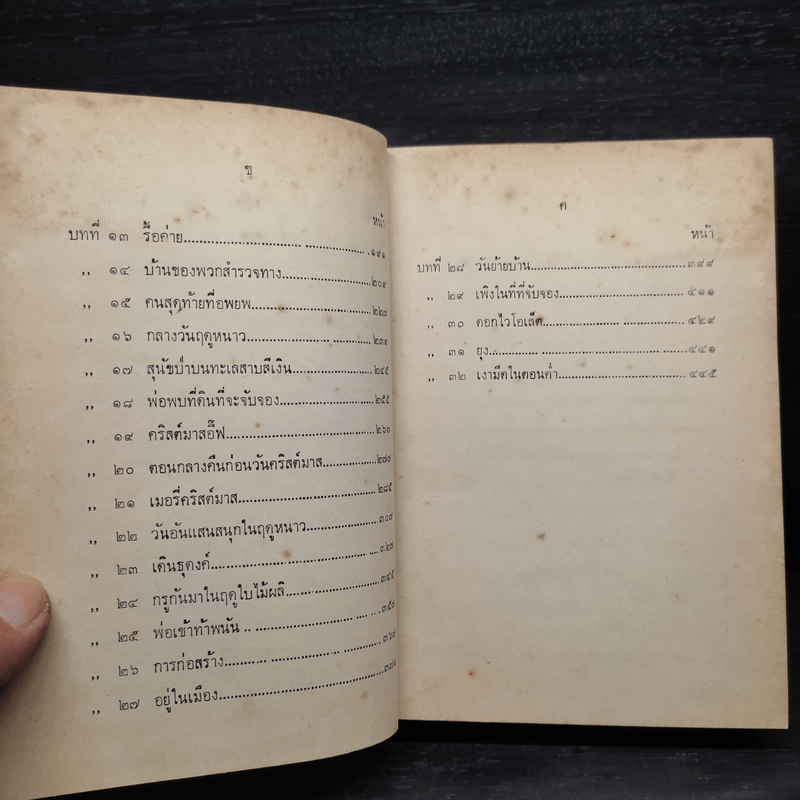 ข
หน้า
บทที่ ๑๓ รื้อค่าย........................ ๑๙๑
,, ๑๔ บ้านของพวกสำรวจทาง........................๒๐๙
,, ๑๕ คนสุดท้ายที่อพยพ........................
,, ๑๖ กลางวันฤดูหนาว........................
,, ๑๗ สุนัขป่าบนทะเลสาบสีเงิน........................๒๔๕
,, ๑๘ พ่อพบที่ดินที่จะจับจอง........................๒๕๕
,, ๑๙ คริสต์มาสอี๊ฟ........................๒๖๓
,, ๒๐ ตอนกลางคืนก่อนวันคริสต์มาส........................๒๗๗
,, ๒๑ เมอรี่คริสต์มาส........................๒๘๕
,, ๒๒ วันอันแสนสนุกในฤดูหนาว........................๓๐๗
,, ๒๓ เดินธุดงค์........................๓๒๗
,, ๒๔ กรูกันมาในฤดูใบไม้ผลิ........................๓๔๕
,, ๒๕ พ่อเข้าท้าพนัน ........................
,, ๒๖ การก่อสร้าง........................๓๖๗
,, ๒๗ อยู่ในเมือง........................
ค
หน้า
บทที่ ๒๘ วันย้ายบ้าน........................๓๙๙
,, ๒๙ เพิงในที่ที่จับจอง........................๔๑๑
,, ๓๐ ดอกไวโอเล็ต........................๔๒๙
,, ๓๑ ยุง........................๔๔๑
,, ๓๒ เงามืดในตอนค่ำ........................๔๔๕